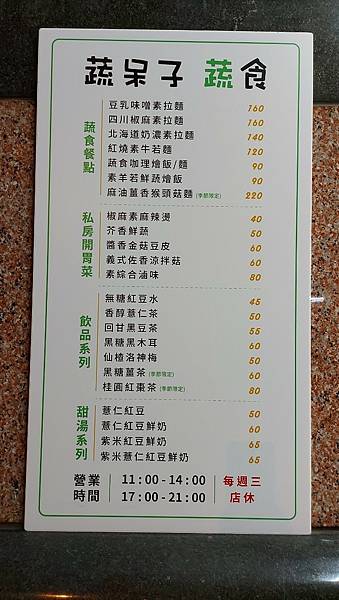 蔬呆子 蔬食
蔬食餐點
豆乳味噌素拉麵 160
四川椒麻素拉麵 160
北海道奶濃素拉麵 140
紅燒素牛若麵 120
蔬食咖哩燴飯/麵 90
素羊若鮮蔬燴飯 90
麻油薑香猴頭菇麵 (季節限定) 220
私房開胃菜
椒麻素麻辣燙 40
芥香鮮蔬 50
醬香金菇豆皮 60
義式佐香涼拌菇 60
素綜合滷味 80
飲品系列
無糖紅豆水 45
香醇薏仁茶 50
回甘黑豆茶 55
黑糖黑木耳 60
仙楂洛神梅 50
黑糖薑茶 (季節限定) 60
桂圓紅棗茶 (季節限定) 80
甜湯系列
薏仁紅豆 50
薏仁紅豆鮮奶 60
紫米紅豆鮮奶 65
紫米薏仁紅豆鮮奶 65
營業時間
11:00-14:00
17:00-21:00
每週三
店休